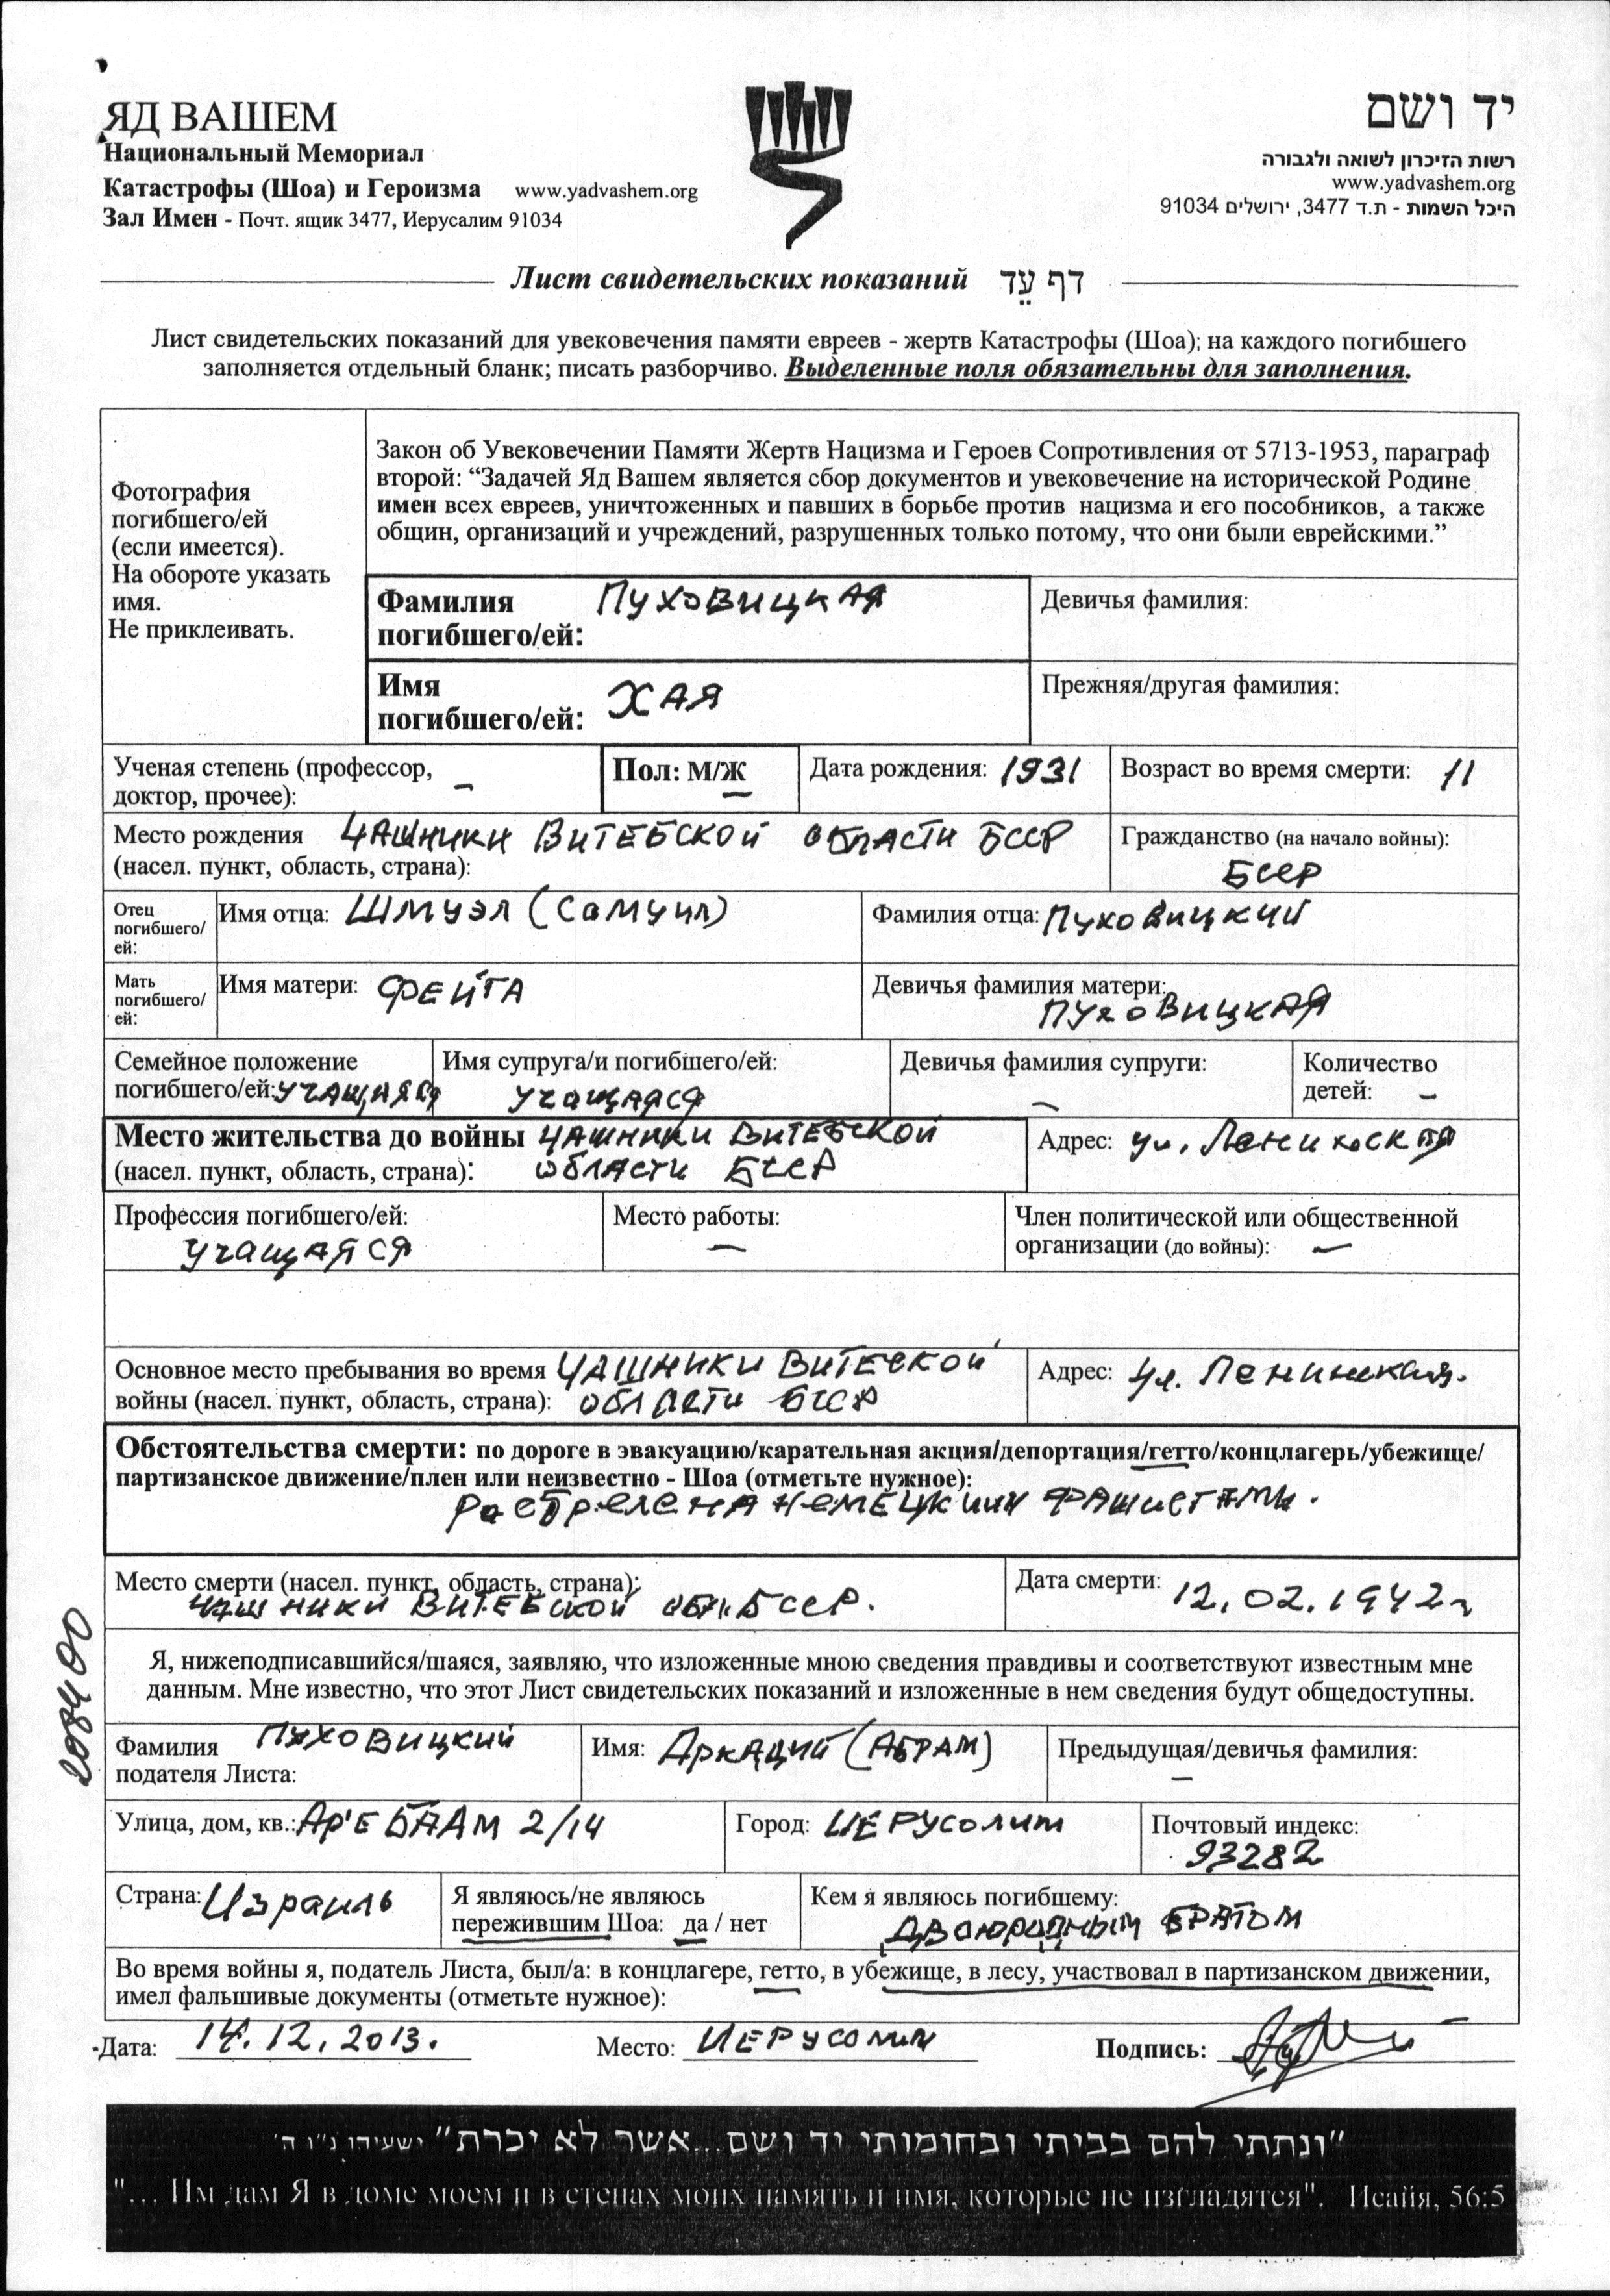 ЯД ВАШЕМ
Национальный Мемориал
Катастрофы (Шоа) и Героизма www.yadvashem.org
Зал Имен - Почт. ящик 3477, Иерусалим 91034
יד ושם
רשות הזיכרון לשואה ולגבורה
www.yadvashem.org
היכל השמות - ת.ד 3477, ירושלים 91034
Лист свидетельских показаний דף עֵד
Лист свидетельских показаний для увековечения памяти евреев - жертв Катастрофы (Шоа); на каждого погибшего
заполняется отдельный бланк; писать разборчиво. Выделенные поля обязательны для заполнения.
Фотография
погибшего/ей
(если имеется).
На обороте указать
имя.
Не приклеивать.
Закон об Увековечении Памяти Жертв Нацизма и Героев Сопротивления от 5713-1953, параграф
второй: “Задачей Яд Вашем является сбор документов и увековечение на исторической Родине
имен всех евреев, уничтоженных и павших в борьбе против нацизма и его пособников, а также
общин, организаций и учреждений, разрушенных только потому, что они были еврейскими.”
Фамилия ПУХОВИЦКАЯ
погибшего/ей:
Девичья фамилия:
Имя ХАЯ
погибшего/ей:
Прежняя/другая фамилия:
Ученая степень (профессор, –
доктор, прочее):
Пол: М/Ж
Дата рождения: 1931
Возраст во время смерти: 11
Место рождения ЧАШНИКИ ВИТЕБСКОЙ ОБЛАСТИ БССР
(насел. пункт, область, страна):
Гражданство (на начало войны):
БССР
Отец
погибшего/
ей:
Имя отца: ШМУЭЛ (САМУИЛ)
Фамилия отца: ПУХОВИЦКИЙ
Мать
погибшего/
ей:
Имя матери: ФЕЙГА
Девичья фамилия матери:
ПУХОВИЦКАЯ
Семейное положение
погибшего/ей: УЧАЩАЯСЯ
Имя супруга/и погибшего/ей:
УЧАЩАЯСЯ
Девичья фамилия супруги:
–
Количество
детей: –
Место жительства до войны ЧАШНИКИ ВИТЕБСКОЙ
(насел. пункт, область, страна): ОБЛАСТИ БССР
Адрес: ул. Ленинская
Профессия погибшего/ей:
УЧАЩАЯСЯ
Место работы:
–
Член политической или общественной
организации (до войны): –
Основное место пребывания во время ЧАШНИКИ ВИТЕСКОЙ
войны (насел. пункт, область, страна): ОБЛАСТИ БССР
Адрес: ул. Ленинская.
Обстоятельства смерти: по дороге в эвакуацию/карательная акция/депортация/гетто/концлагерь/убежище/
партизанское движение/плен или неизвестно - Шоа (отметьте нужное):
РАСТРЕЛЕНА НЕМЕЦКИМИ ФАШИСТАМИ.
Место смерти (насел. пункт, область, страна):
ЧАШНИКИ ВИТЕБСКОЙ ОБЛ. БССР.
Дата смерти: 12.02.1942г
Я, нижеподписавшийся/шаяся, заявляю, что изложенные мною сведения правдивы и соответствуют известным мне
данным. Мне известно, что этот Лист свидетельских показаний и изложенные в нем сведения будут общедоступны.
Фамилия ПУХОВИЦКИЙ
подателя Листа:
Имя: АРКАДИЙ (АБРАМ)
Предыдущая/девичья фамилия:
–
Улица, дом, кв.: АР'Е БААМ 2/14
Город: ИЕРУСОЛИМ
Почтовый индекс:
93282
Страна: Израиль
Я являюсь/не являюсь
пережившим Шоа: да / нет
Кем я являюсь погибшему:
ДВОЮРОДНЫМ БРАТОМ
Во время войны я, податель Листа, был/а: в концлагере, гетто, в убежище, в лесу, участвовал в партизанском движении,
имел фальшивые документы (отметьте нужное):
Дата: 14.12.2013.
Место: ИЕРУСОЛИМ
Подпись:
"ונתתי להם בביתי ובחומותי יד ושם...אשר לא יכרת" ישעיהו נ"ו ה'
"... Им дам Я в доме моем и в стенах моих память и имя, которые не изгладятся". Исайя, 56:5
208400